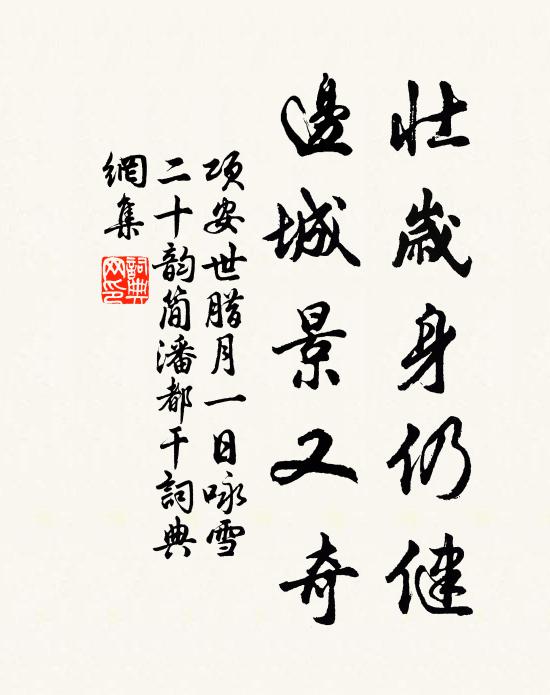 壯歲身仍健
邊城景又奇
項安世腊月一日咏雪
二十韵简潘都干詞典
網集
詞典
网印